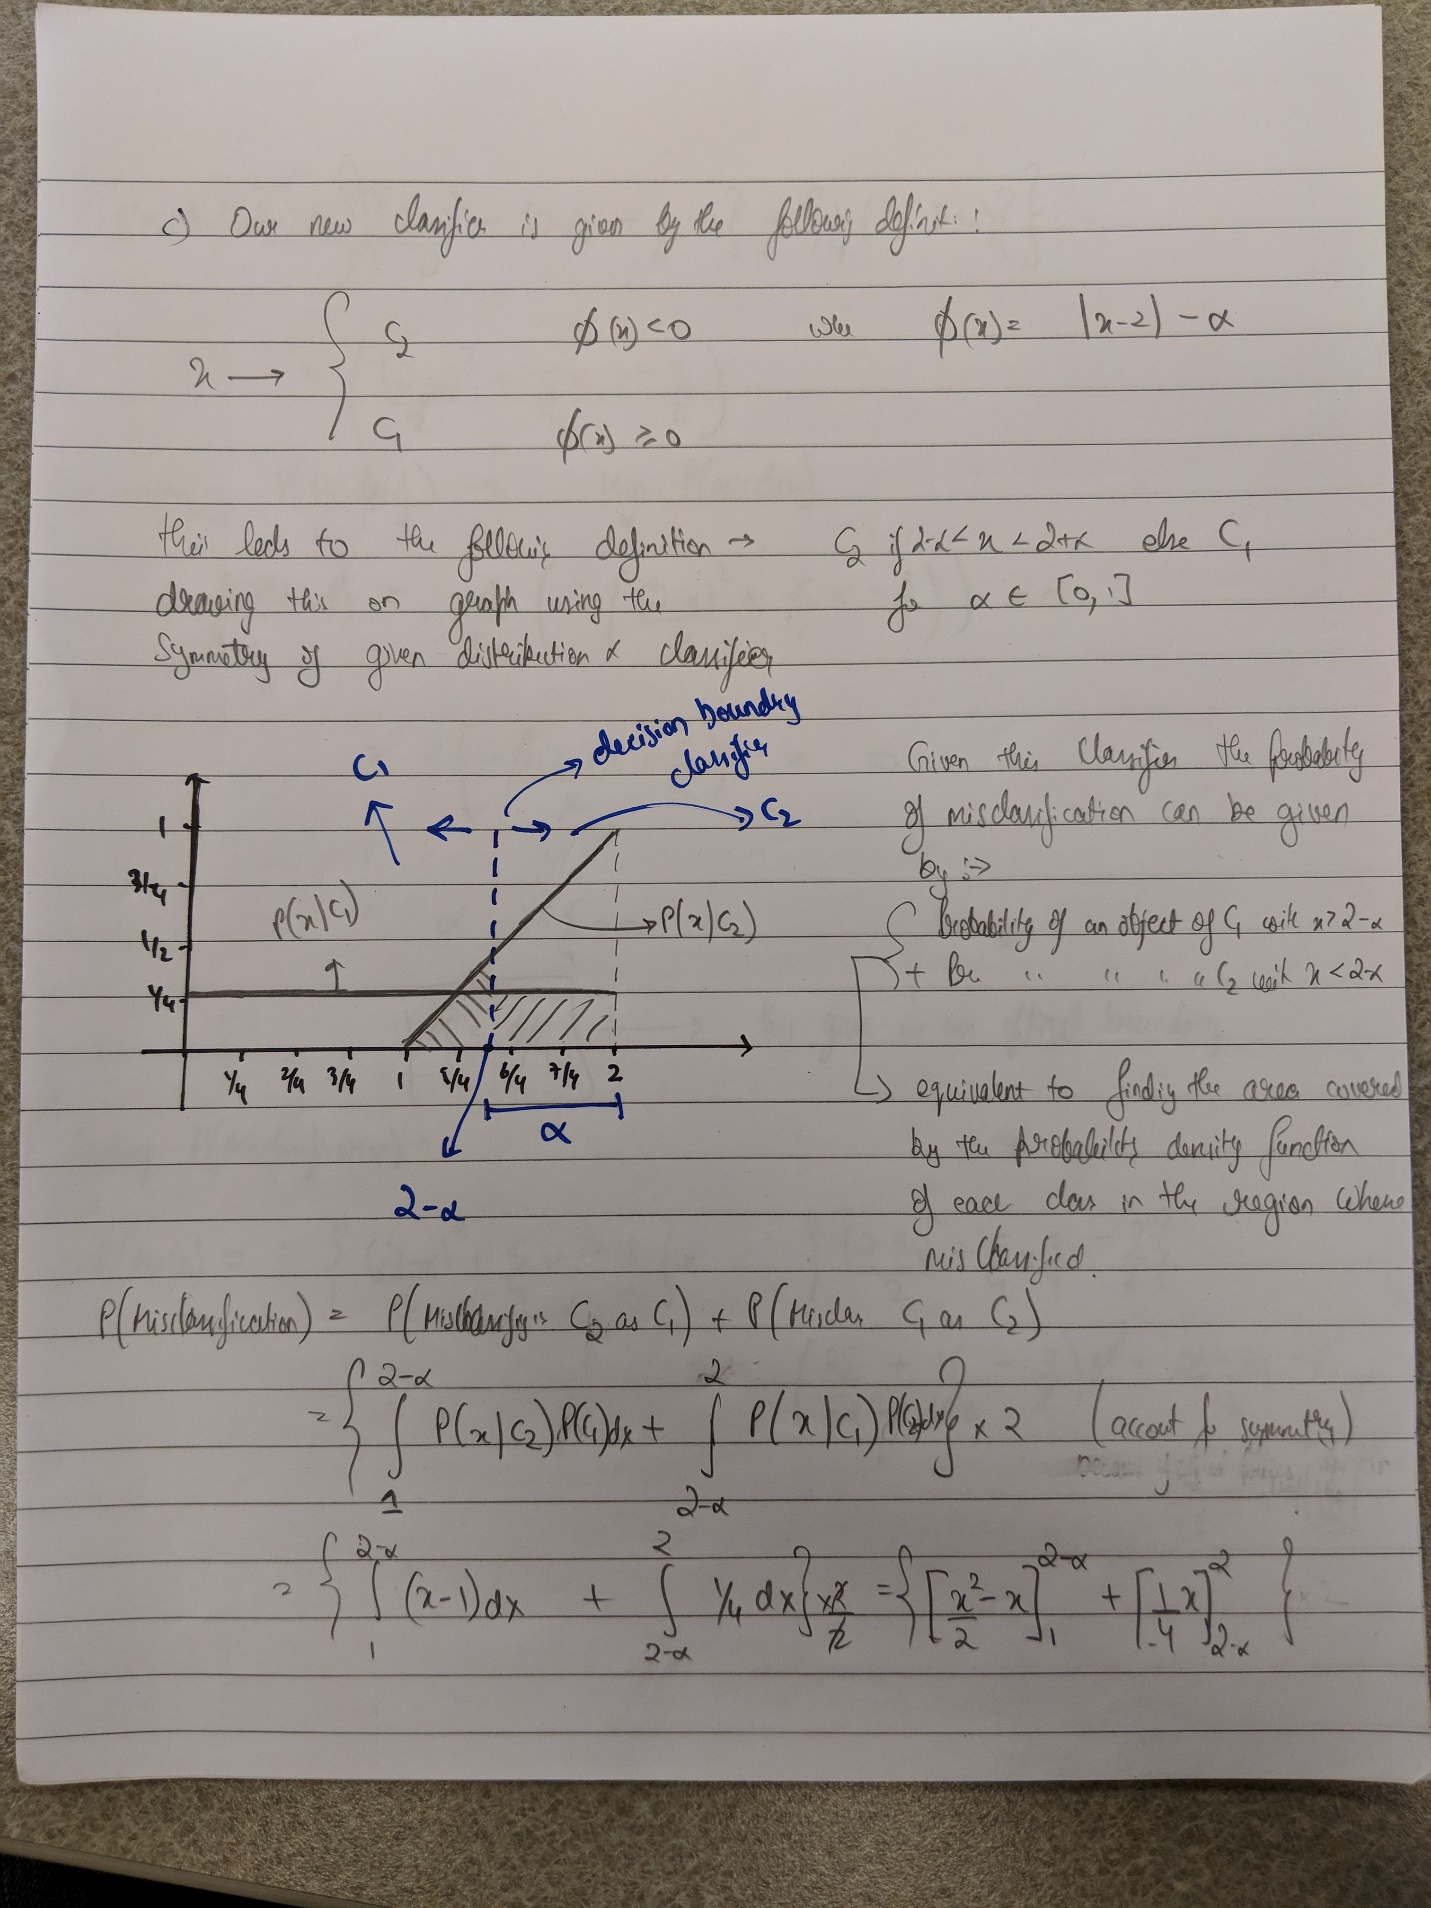 c) Our new classifier is given by the following definit. :
x → { C₂ ϕ(x) < 0 where ϕ(x) = |x-2| - α
C₁ ϕ(x) ≥ 0
this leds to the following definition → C₂ if 2-α < x < 2+α else C₁
drawing this on graph using the for α ∈ [0,1]
Symmetry of given distribution & classifier
decision boundry
classifier
C₁
C₂
1
3/4
1/2
1/4
P(x|C₁)
P(x|C₂)
1/4 2/4 3/4 1 5/4 6/4 7/4 2
α
2-α
Given this Classifier the probability
of misclassification can be given
by :→
{ Probability of an object of C₁ with x > 2-α
+ Pro " " " " C₂ with x < 2-α
↳ equivalent to findig the area covered
by the probability density function
of each class in the region where
misclassified.
P(Misclassification) = P(Misclassifyin C₂ as C₁) + P(Misclas C₁ as C₂)
= { ∫₁^{2-α} P(x|C₂)P(C₁)dx + ∫_{2-α}^{2} P(x|C₁)P(C₂)dx } × 2 (accout for symmetry)
= { ∫₁^{2-α} (x-1)dx + ∫_{2-α}^{2} 1/4 dx } × 2/2 = { [x²/2 - x]₁^{2-α} + [1/4 x]_{2-α}^{2} }